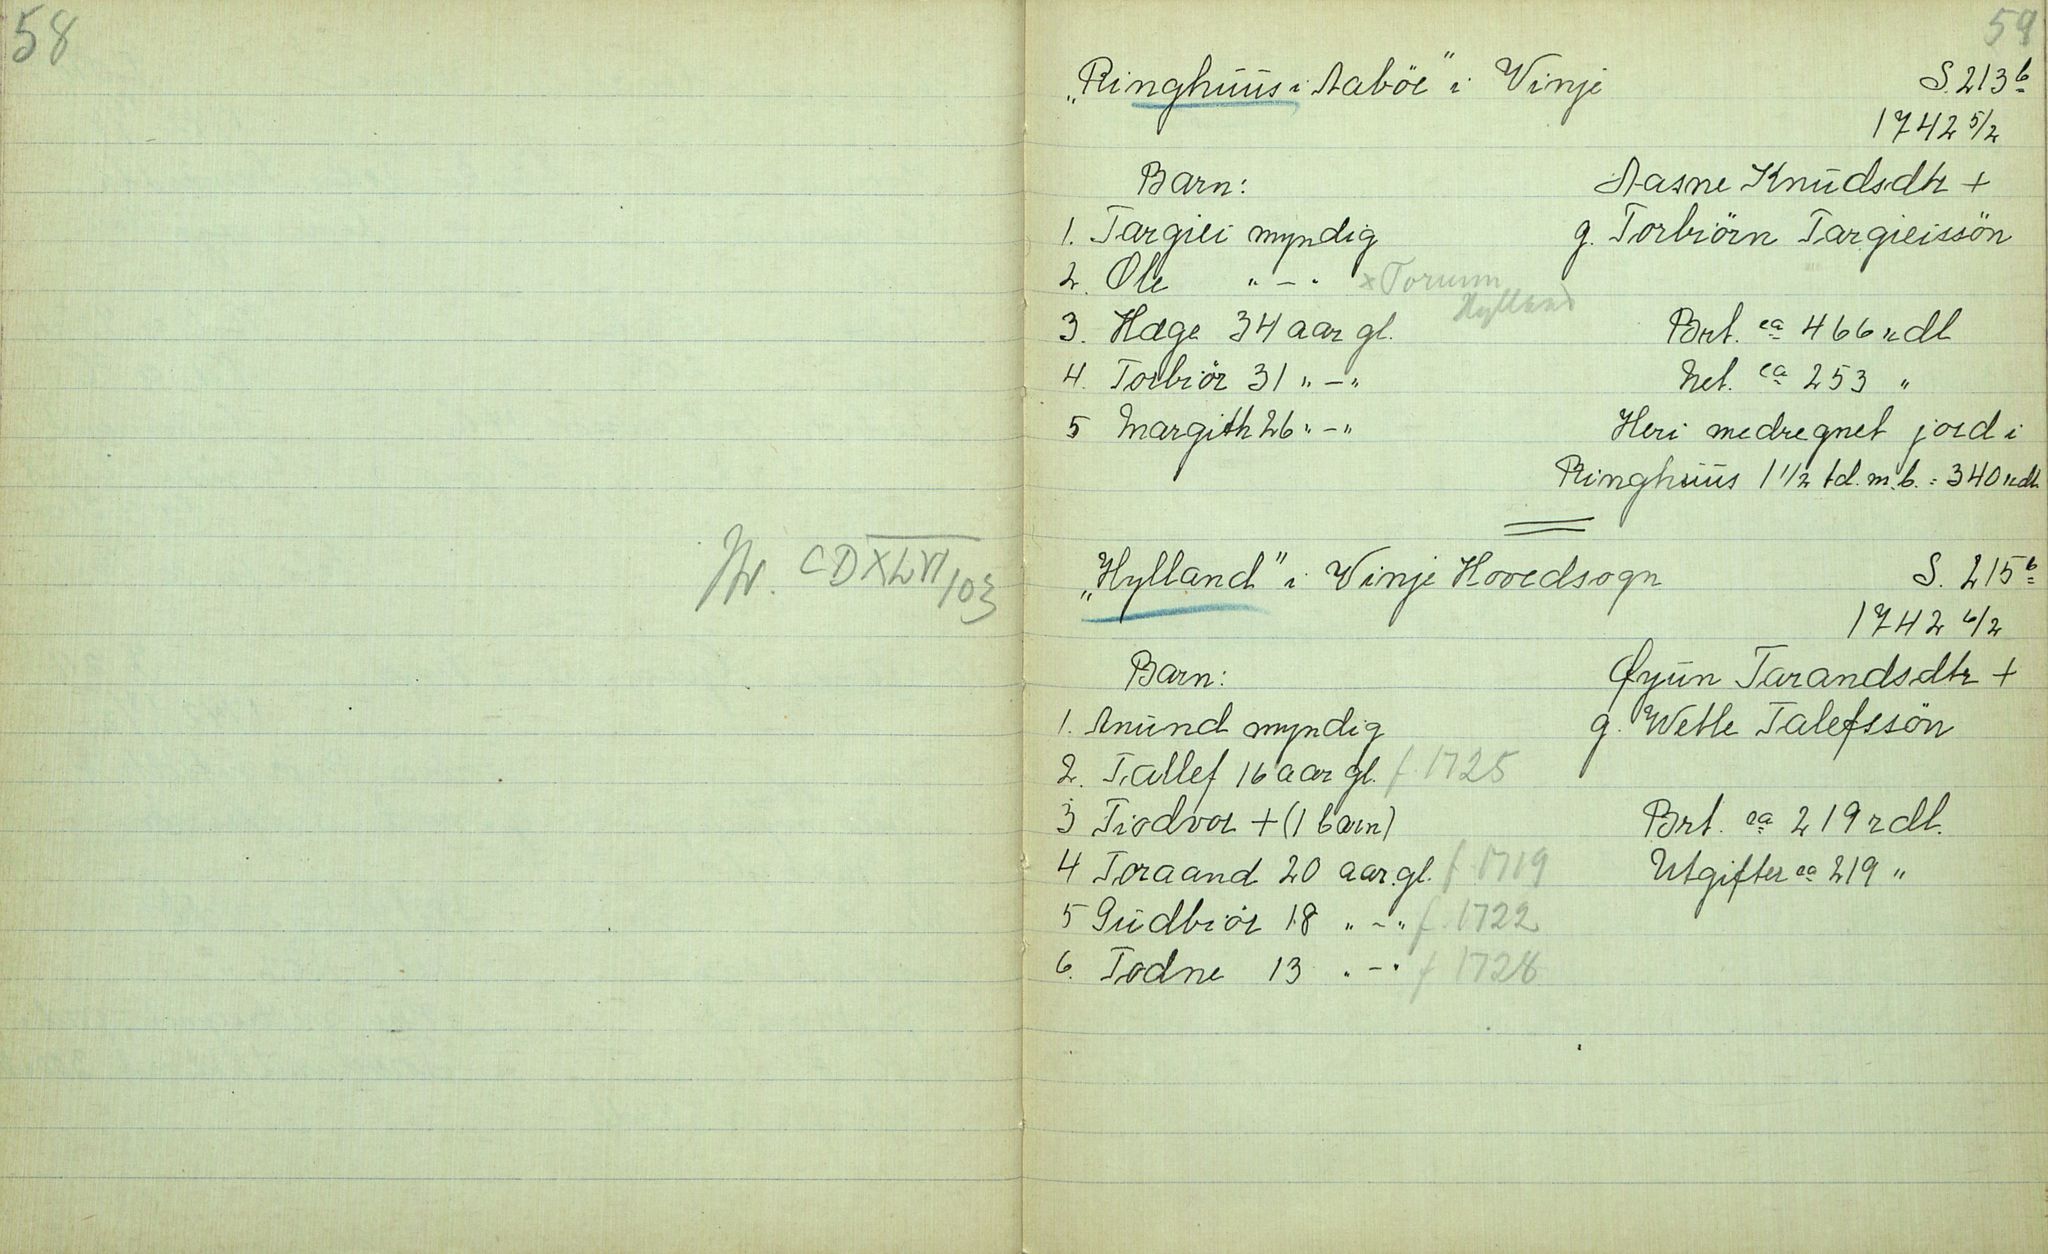 58
CDXLVI/103
59
„Ringhuus i Aaböe" i Vinje S. 213b
1742 5/2
Barn: Aasne Knudsdtr +
1. Targiei myndig g. Torbiörn Targieissön
2. Ole " - " x Torunn
Hylland
3. Hæge 34 aar gl. Brt. ca 466 rdl
4. Torbiör 31 " - " Net. ca 253 "
5 Margith 26 " - " Heri medregnet jord i
Ringhuus 1 1/2 td. m. b. = 340 rdl.
„Hylland" i Vinje Hovedsogn S. 215b
1742 6/2
Barn: Øyun Tarandsdtr +
1. Anund myndig g. Wetle Talefssön
2. Tallef 16 aar gl. f. 1725
3 Tiodvor + (1 barn) Brt. ca 219 rdl.
4 Toraand 20 aar gl. f. 1719 Utgifter ca 219 "
5 Gudbiör 18 " - " f. 1722
6. Todne 13 " - " f 1728